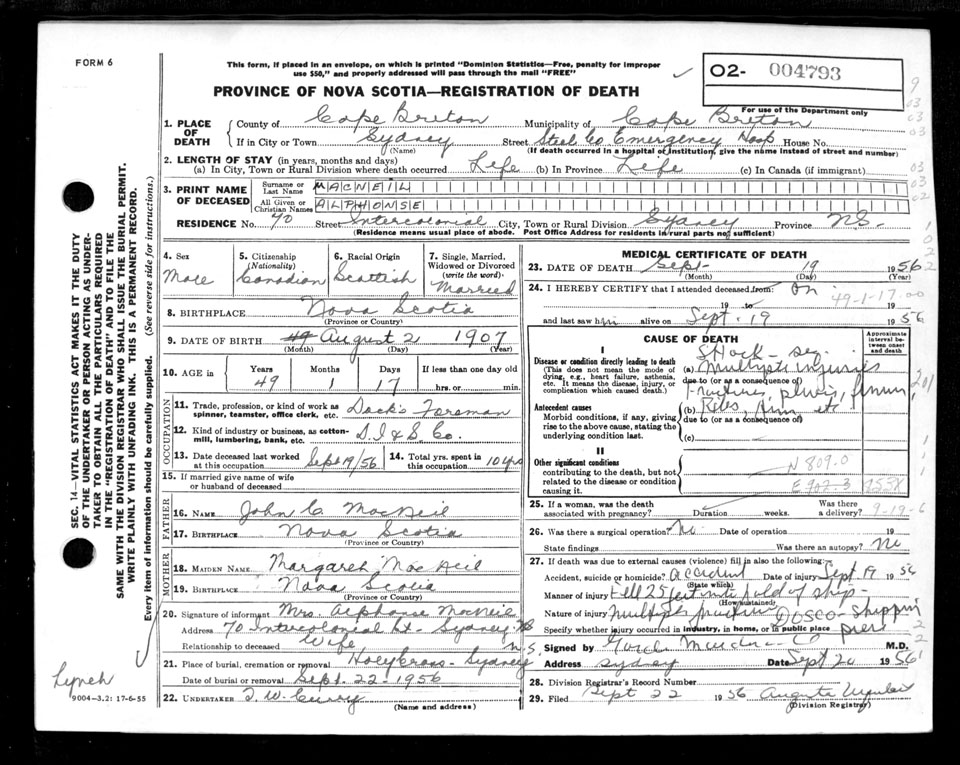 FORM 6
This form, if placed in an envelope, on which is printed "Dominion Statistics—Free, penalty for improper
use $50," and properly addressed will pass through the mail "FREE"
O2- 004793
For use of the Department only
PROVINCE OF NOVA SCOTIA—REGISTRATION OF DEATH
1. PLACE OF DEATH
County of Cape Breton Municipality of Cape Breton
If in City or Town Sydney Street Steel Co Emergency Hosp House No.
(Name) (If death occurred in a hospital or institution, give the name instead of street and number)
2. LENGTH OF STAY (in years, months and days)
(a) In City, Town or Rural Division where death occurred Life (b) In Province Life (c) In Canada (if immigrant)
3. PRINT NAME OF DECEASED
Surname or Last Name MACNEIL
All Given or Christian Names ALPHONSE
RESIDENCE No. 70 Street Intercolonial City, Town or Rural Division Sydney Province NS.
(Residence means usual place of abode. Post Office Address for residents in rural parts not sufficient)
4. Sex Male
5. Citizenship (Nationality) Canadian
6. Racial Origin Scottish
7. Single, Married, Widowed or Divorced (write the word) Married
8. BIRTHPLACE Nova Scotia
(Province or Country)
9. DATE OF BIRTH 49 August 2 1907
(Month) (Day) (Year)
10. AGE in Years 49 Months 1 Days 17 If less than one day old hrs. or min.
OCCUPATION
11. Trade, profession, or kind of work as spinner, teamster, office clerk, etc. Dock's Foreman
12. Kind of industry or business, as cotton-mill, lumbering, bank, etc. D.I & S. Co.
13. Date deceased last worked at this occupation Sept 19/56 14. Total yrs. spent in this occupation 10 yrs
15. If married give name of wife or husband of deceased
FATHER
16. NAME John C. MacNeil
17. BIRTHPLACE Nova Scotia
(Province or Country)
MOTHER
18. MAIDEN NAME Margaret MacNeil
19. BIRTHPLACE Nova Scotia
(Province or Country)
20. Signature of informant Mrs. Alphonse MacNeil
Address 70 Intercolonial St. Sydney NS
Relationship to deceased Wife N.S.
21. Place of burial, cremation or removal Holy Cross - Sydney
Date of burial or removal Sept. 22 - 1956
22. UNDERTAKER T. W. Curry
(Name and address)
MEDICAL CERTIFICATE OF DEATH
23. DATE OF DEATH Sept. 19 1956
(Month) (Day) (Year)
24. I HEREBY CERTIFY that I attended deceased from: On
49-1-17.00
19 to 19
and last saw him alive on Sept. 19 1956
CAUSE OF DEATH
Approximate interval between onset and death
I
Disease or condition directly leading to death
(This does not mean the mode of dying, e.g., heart failure, asthenia, etc. It means the disease, injury, or complication which caused death.)
(a) Shock - seq. Multiple injuries
due to (or as a consequence of)
fractures, pelvis, femur,
Antecedent causes
Morbid conditions, if any, giving rise to the above cause, stating the underlying condition last.
(b) Ribs, etc
due to (or as a consequence of)
(c)
II
Other significant conditions
contributing to the death, but not related to the disease or condition causing it.
N 809.0
E 902-3
25. If a woman, was the death associated with pregnancy? Duration weeks. Was there a delivery? 9-19-6
26. Was there a surgical operation? No Date of operation 19
State findings Was there an autopsy? No
27. If death was due to external causes (violence) fill in also the following:
Accident, suicide or homicide? Accident Date of injury Sept 19 1956
(State which)
Manner of injury Fell 25 feet into hold of ship -
(How sustained)
Nature of injury multiple fractures DOSCO - Shipping
Specify whether injury occurred in industry, in home, or in public place pier
Signed by M.D.
Address Sydney Date Sept 20 1956
28. Division Registrar's Record Number
29. Filed Sept 22 1956 Augusta
(Division Registrar)
SEC. 14—VITAL STATISTICS ACT MAKES IT THE DUTY
OF THE UNDERTAKER OR PERSON ACTING AS UNDER-
TAKER TO OBTAIN ALL THE PARTICULARS REQUIRED
IN THE "REGISTRATION OF DEATH" AND TO FILE THE
SAME WITH THE DIVISION REGISTRAR WHO SHALL ISSUE THE BURIAL PERMIT.
WRITE PLAINLY WITH UNFADING INK. THIS IS A PERMANENT RECORD.
Every item of information should be carefully supplied. (See reverse side for instructions.)
Lynch
9004-3.2: 17-6-55